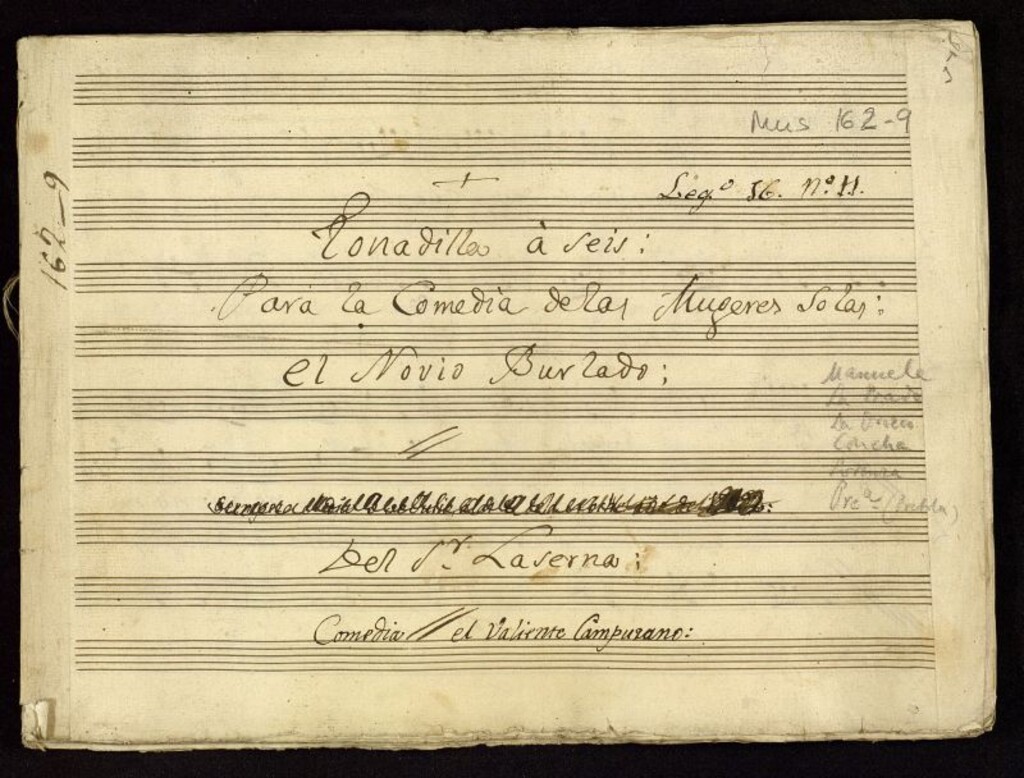 Mus 162-9
162-9
Leg.º 56. Nº 11.
Tonadilla à seis:
Para la Comedia de las Mugeres Solas:
el Novio Burlado;
Manuela
La Prado
Concha
Pre.ª
Del S.r Laserna;
Comedia // el Valiente Campuzano: